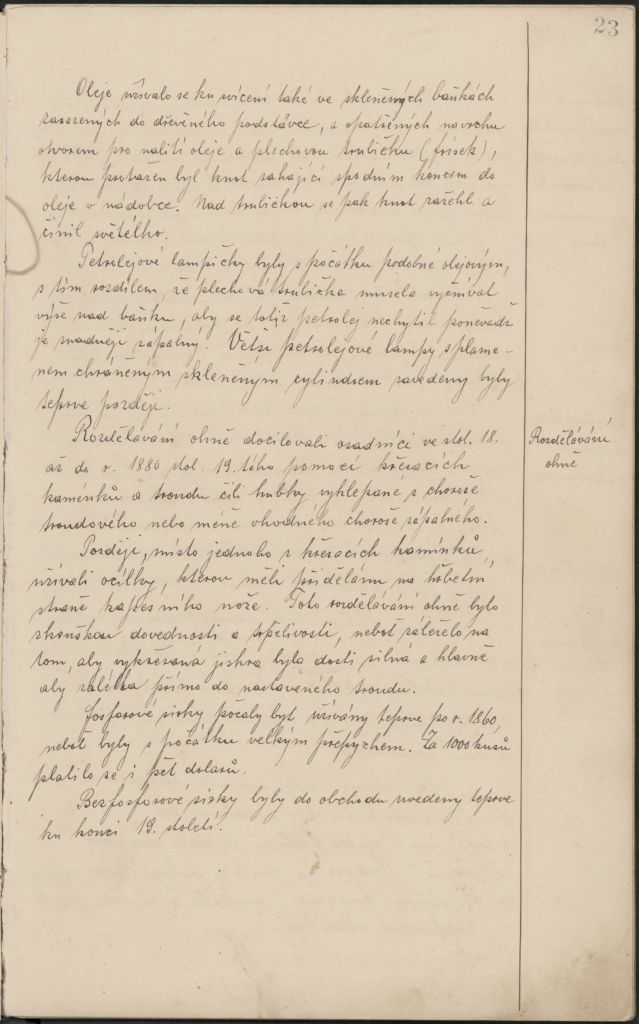 23
Oleje užívalo se ku svícení také ve skleněných baňkách
zasazených do dřevěného podstavce, a opatřených na vrchu
otvorem pro nalití oleje a plechovou trubičku (frisek),
kterou protažen byl knot sahající spodním koncem do
oleje v nádobce. Nad trubičkou se pak knot zažehl a
činil světélko.
Petrolejové lampičky byly s počátku podobné olejovým,
s tím rozdílem, že plechová trubička musela vyčnívat
výše nad baňku, aby se totiž petrolej nechytil poněvadž
je snadněji zápalný. Větší petrolejové lampy s plame-
nem chráněným skleněným cylindrem zavedeny byly
teprve později.
Rozdělávání ohně docilovali osadníci ve stol. 18.
Rozdělávání
až do r. 1880 stol. 19.tého pomocí křesacích
ohně
kamínků a troudu čili hubky vyklepané z choroše
troudového nebo méně vhodného choroše zápalného.
Později, místo jednoho z křesacích kamínků,
užívali ocílky, kterou měli přidělánu na hřbetní
straně kapesního nože. Toto rozdělávání ohně bylo
zkouškou dovednosti a trpělivosti, neboť záleželo na
tom, aby vykřesaná jiskra byla dosti silná a hlavně
aby zalétla přímo do nastaveného troudu.
Fosforové sirky počaly být užívány teprve po r. 1860,
neboť byly s počátku velkým přepychem. Za 1000 kusů
platilo se i pět dolarů.
Bezfosforové sirky byly do obchodu uvedeny teprve
ku konci 19. století.